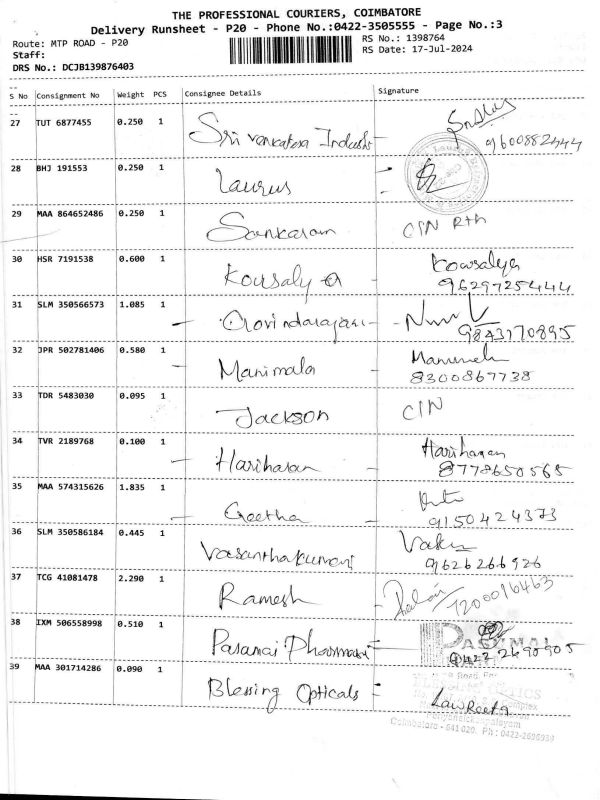 THE PROFESSIONAL COURIERS, COIMBATORE
Delivery Runsheet - P20 - Phone No.:0422-3505555 - Page No.:3
Route: MTP ROAD - P20
RS No.: 1398764
Staff:
RS Date: 17-Jul-2024
DRS No.: DCJB139876403
S No Consignment No Weight PCS Consignee Details Signature
27 TUT 6877455 0.250 1 Sri Venkatesa 9600882444
28 BHJ 191553 0.250 1 Laurus
29 MAA 864652486 0.250 1 Sankaran C/N
30 HSR 7191538 0.600 1 Kowsalya Kowsalya
9629725444
31 SLM 350566573 1.085 1 Govindarajan 9843170895
32 JPR 502781406 0.580 1 Manimala
8300867738
33 TDR 5483030 0.095 1 Jackson C/N
34 TVR 2189768 0.100 1 Hariharan Hariharan
8778650565
35 MAA 574315626 1.835 1 Geetha
9150424373
36 SLM 350586184 0.445 1 Vasanthakumari
9626266926
37 TCG 41081478 2.290 1 Ramesh
38 IXM 506558998 0.510 1 Pasumai Pharmacy
04222490905
39 MAA 301714286 0.090 1 Blessing Opticals
Coimbatore - 641 020. Ph: 0422-2696939